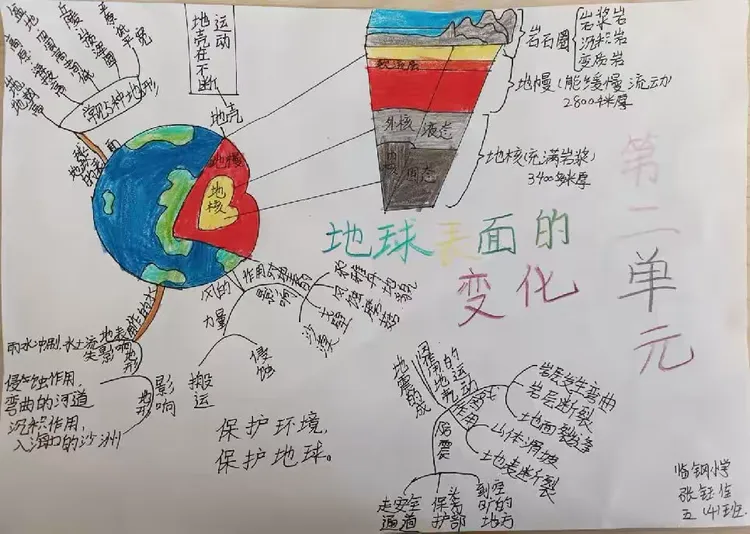 地壳在不断
运动
盆地
丘陵
高原
常见5种地形
地球的表面
地壳
地幔
地核
软流层
外核
液态
内核
固态
岩石圈
岩浆岩
沉积岩
变质岩
地幔(能缓慢流动)
2800千米厚
地核(充满岩浆)
3400多米厚
第二单元
地球表面的
变化
风的
作用
影响
力量
侵蚀
搬运
沙漠
戈壁
雨水冲刷,水土流失
影响地形
侵蚀作用,
弯曲的河道
沉积作用,
入海口的沙洲
影响
地形
保护环境,
保护地球。
地震的成因
地壳的运动
岩层发生弯曲
岩层断裂
地面裂缝
山体滑坡
地表断裂
防震
走安全
通道
保护
头部
到空旷的
地方
临钢小学
张钰佳
五(4)班